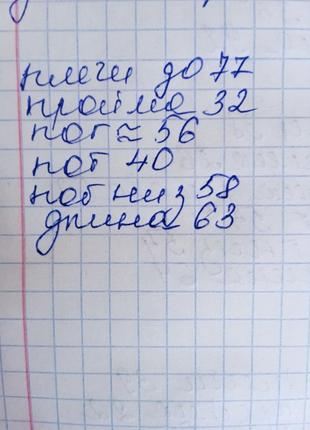 плечи до 77
пройма 32
пог ≈ 56
пот 40
поб низ 58
длина 63